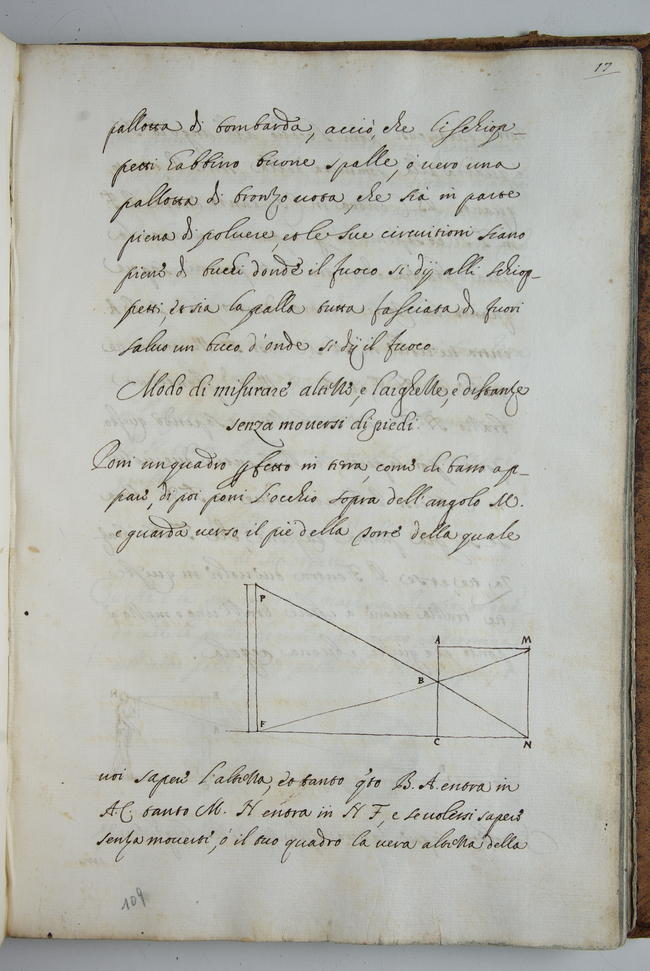 17
pallotta di bombarda, acciò, che li schiop-
petti habbino buone spalle, ò vero una
pallotta di bronzo vota, che sia in parte
piena di polvere, et le sue circuitioni siano
piene di buchi donde il fuoco si dij alli schiop-
petti, et sia la palla tutta fasciata di fuori
salvo un buco d'onde si dij il fuoco.
Modo di misurare altezze, e larghezze, e distanze
senza moversi di piedi.
Poni un quadro pfetto in terra, come di sotto ap-
pare, di poi poni l'occhio sopra dell'angolo M.
e guarda verso il piè della torre della quale
P
A
M
B
F
C
N
voi sapere l'altezza, et tanto q̃to B. A. entra in
A C. tanto M. N entra in N F, e se volessi sapere
senza moverti, ò il tuo quadro la vera altezza della
109